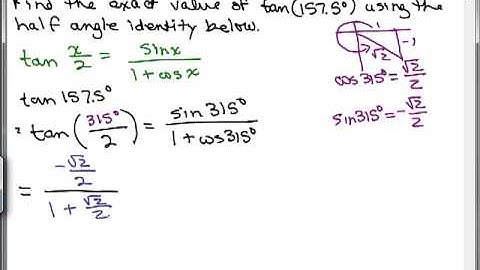 Find the exact value of tan(157.5°) using the
half angle identity below.
tan x/2 = sinx / 1 + cosx
tan 157.5°
= tan (315°/2) = sin 315° / 1 + cos 315°
= -√2/2 / 1 + √2/2
1
-1
√2
cos 315° = √2/2
sin 315° = -√2/2